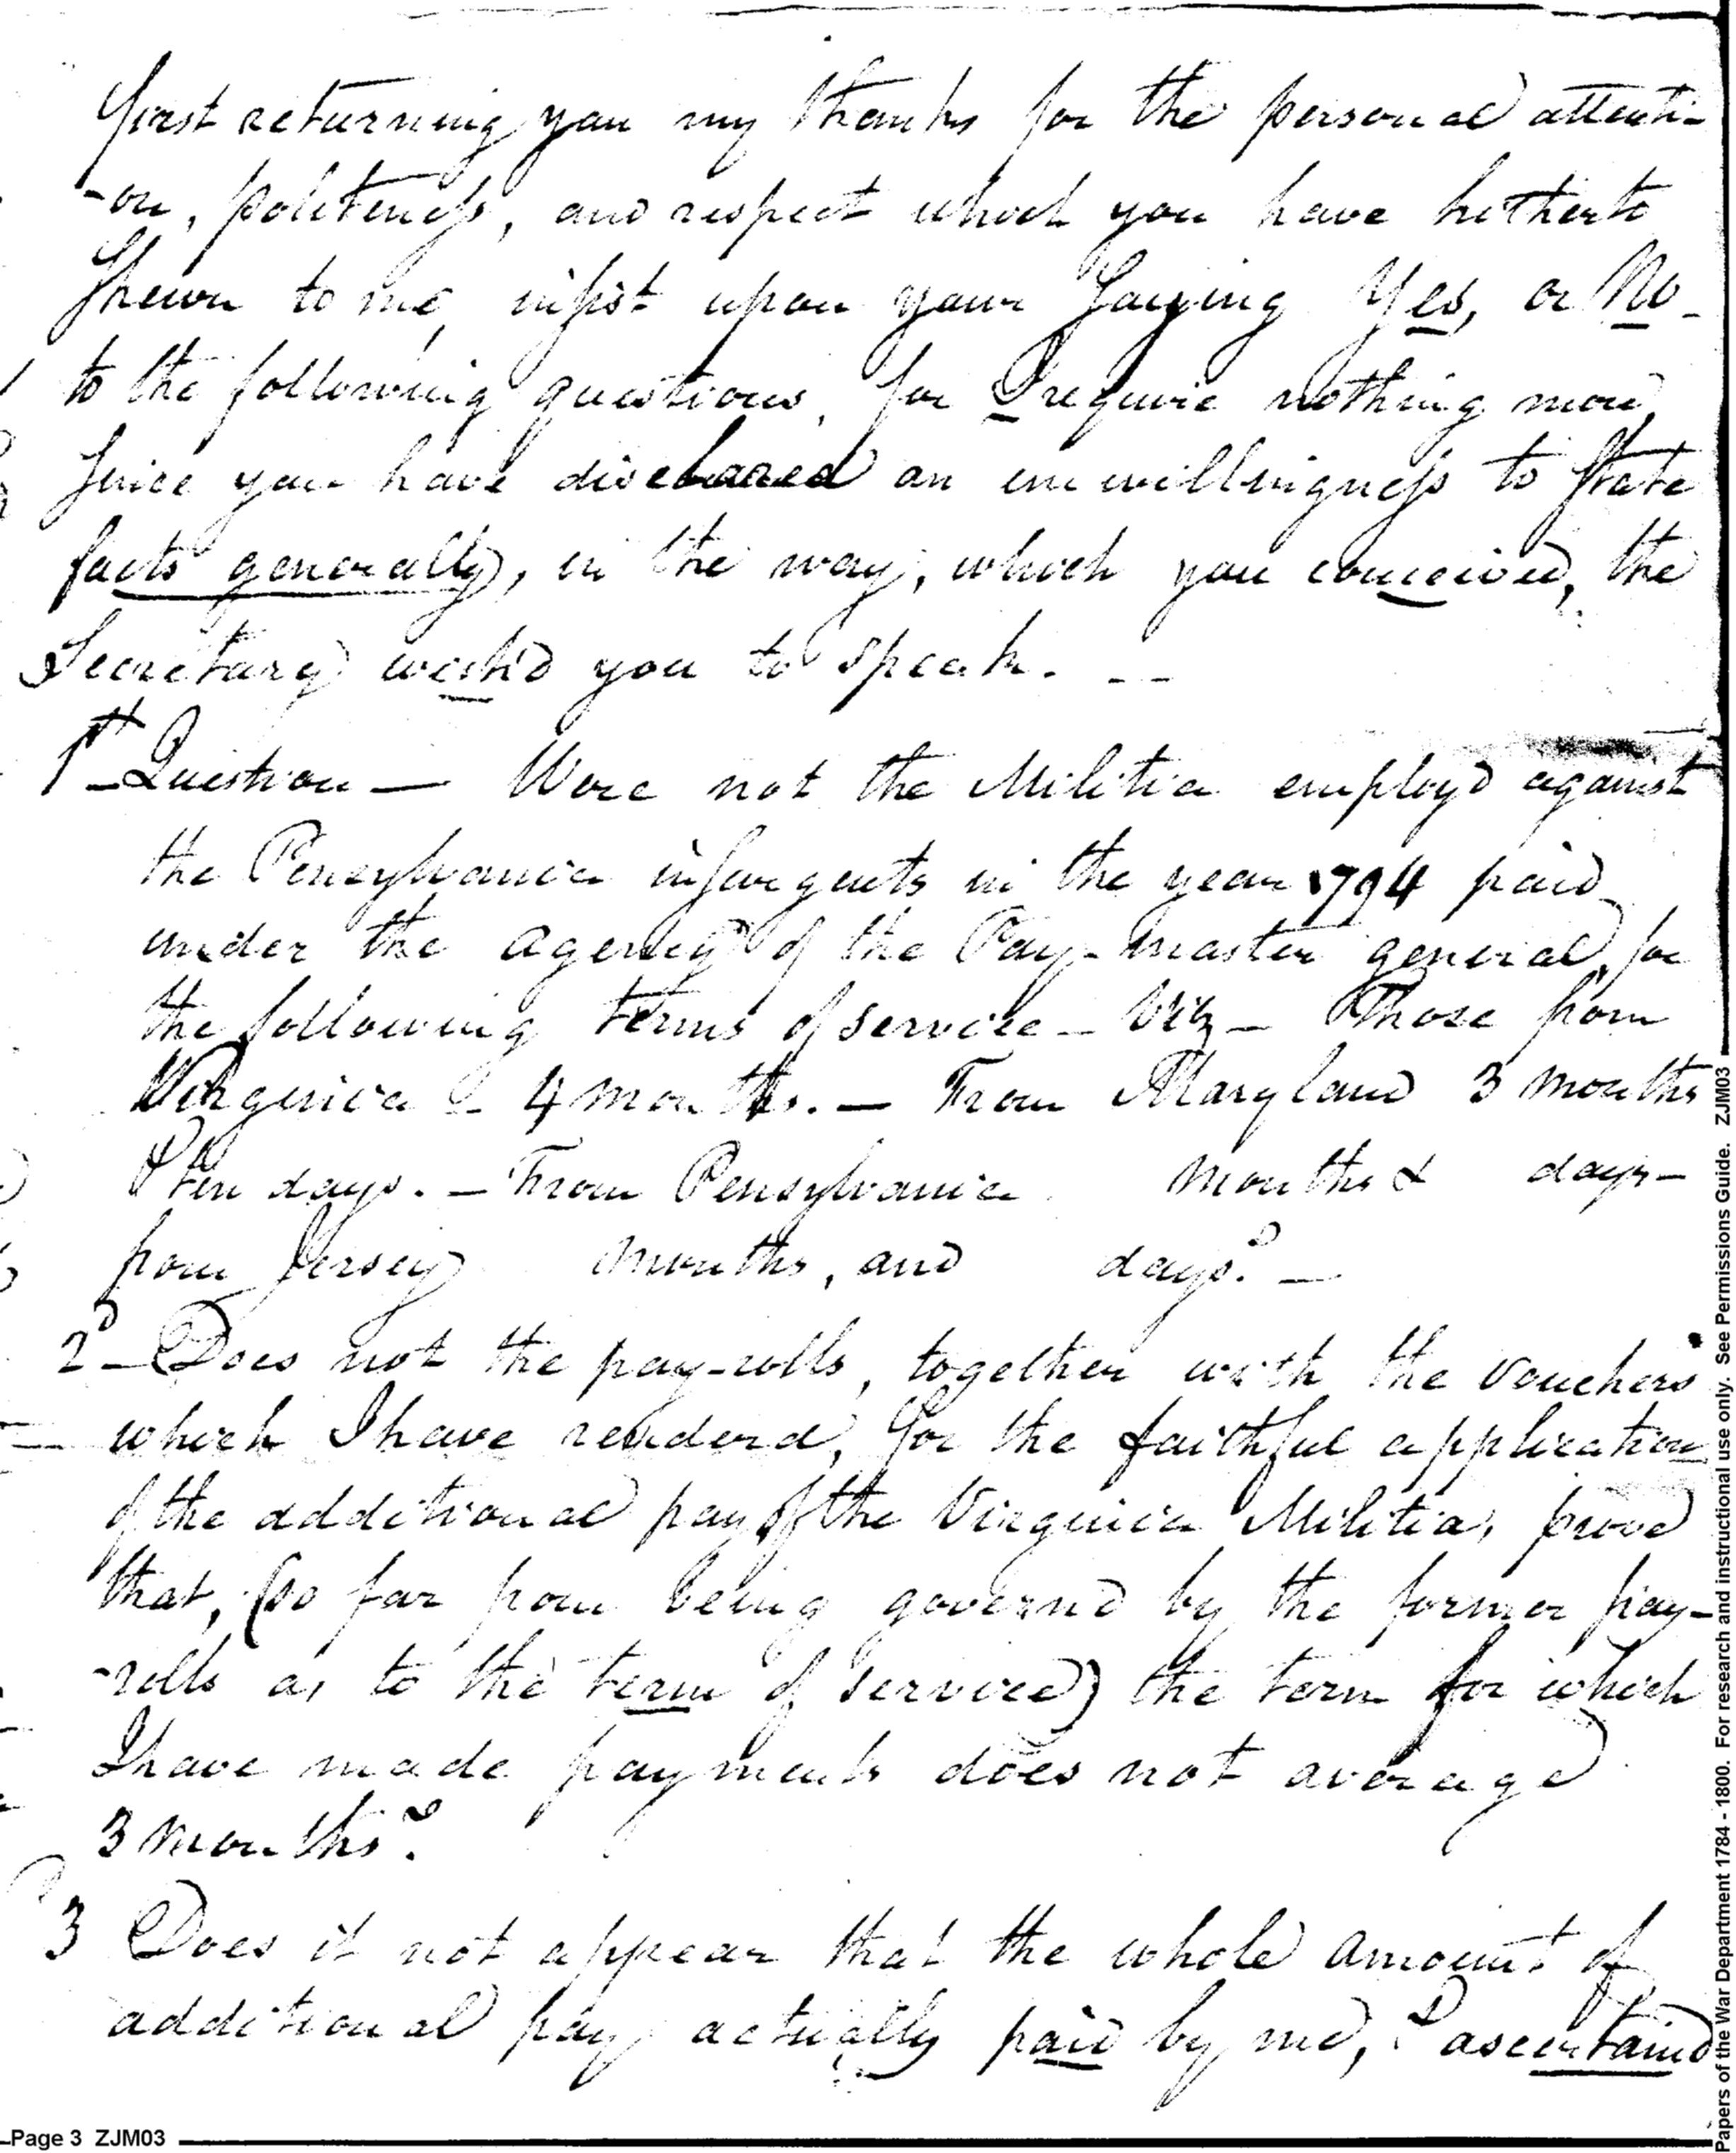 first returning you my thanks for the personal attenti-
-on, politeness, and respect which you have hitherto
shewn to me, insist upon your saying Yes, or No -
to the following questions, for I require nothing more,
since you have disclosed an unwillingness to state
facts generally, in the way, which you conceived, the
Secretary wish'd you to speak. --
1st Question — Were not the Militia employ'd against
the Pensylvania insurgents in the year 1794 paid
under the agency of the Pay-master general, for
the following terms of service - Viz - Those from
Virginia - 4 months. — From Maryland 3 months
& ten days. — From Pensylvania months & days -
from Jersey months, and days? —
2d - Does not the pay-rolls, together with the vouchers
which I have renderd, for the faithful application
of the additional pay of the Virginia Militia, prove
that, (so far from being govern'd by the former pay-
-rolls as to the term of service) the term for which
I have made payments does not average
3 months?
3 Does it not appear that the whole amount of
additional pay actually paid by me, & ascertained
Page 3 ZJM03
Papers of the War Department 1784 - 1800. For research and instructional use only. See Permissions Guide. ZJM03